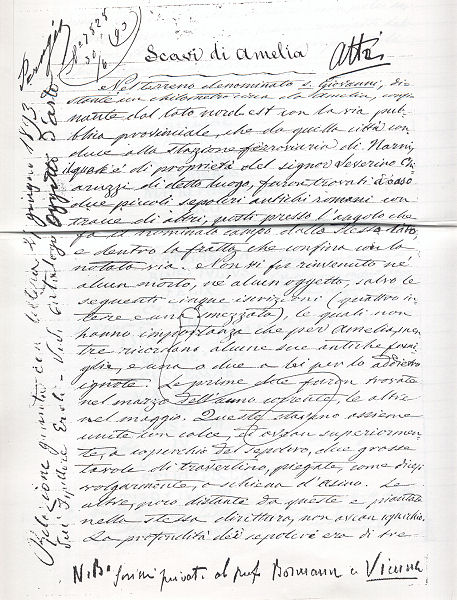 N. 7828
30/6 93
Scavi di Amelia
Atti
Nel terreno denominato S. Giovanni, di-
stante un chilometro circa da Amelia, confi-
nante dal lato nord-est con la via pub-
blica provinciale, che da quella città con-
duce alla stazione ferroviaria di Narni,
il quale è di proprietà del signor Severino
di detto luogo, furon trovati a caso
due piccoli sepolcri antichi romani con
tracce di altri, posti presso l'angolo che
fa il nominato campo dalla stessa lato
e dentro la fratta che confina con la
notata via. Non vi fu rinvenuto nè
alcun morto, nè alcun oggetto, salvo le
seguenti cinque iscrizioni (quattro in-
tere e una smezzata), le quali non
hanno importanza che per Amelia, men-
tre ricordano alcune sue antiche fami-
glie, e una o due a lei per lo addietro
ignote. Le prime due furon trovate
nel marzo dell'anno corrente, le altre
nel maggio. Queste stavano assieme
unite con calce, ed avean superiormen-
te, a coperchio del sepolcro, due grosse
tavole di travertino, piegate, come dicesi
volgarmente, a schiena d'asino. Le
altre, poco distante da queste e piantate
nella stessa dirittura, non avean coperchio.
La profondità dei sepolcri era di tre
N.B. scrissi privat. al prof. Bormann a Vienna
Relazione giunta con lettera giugno 1893